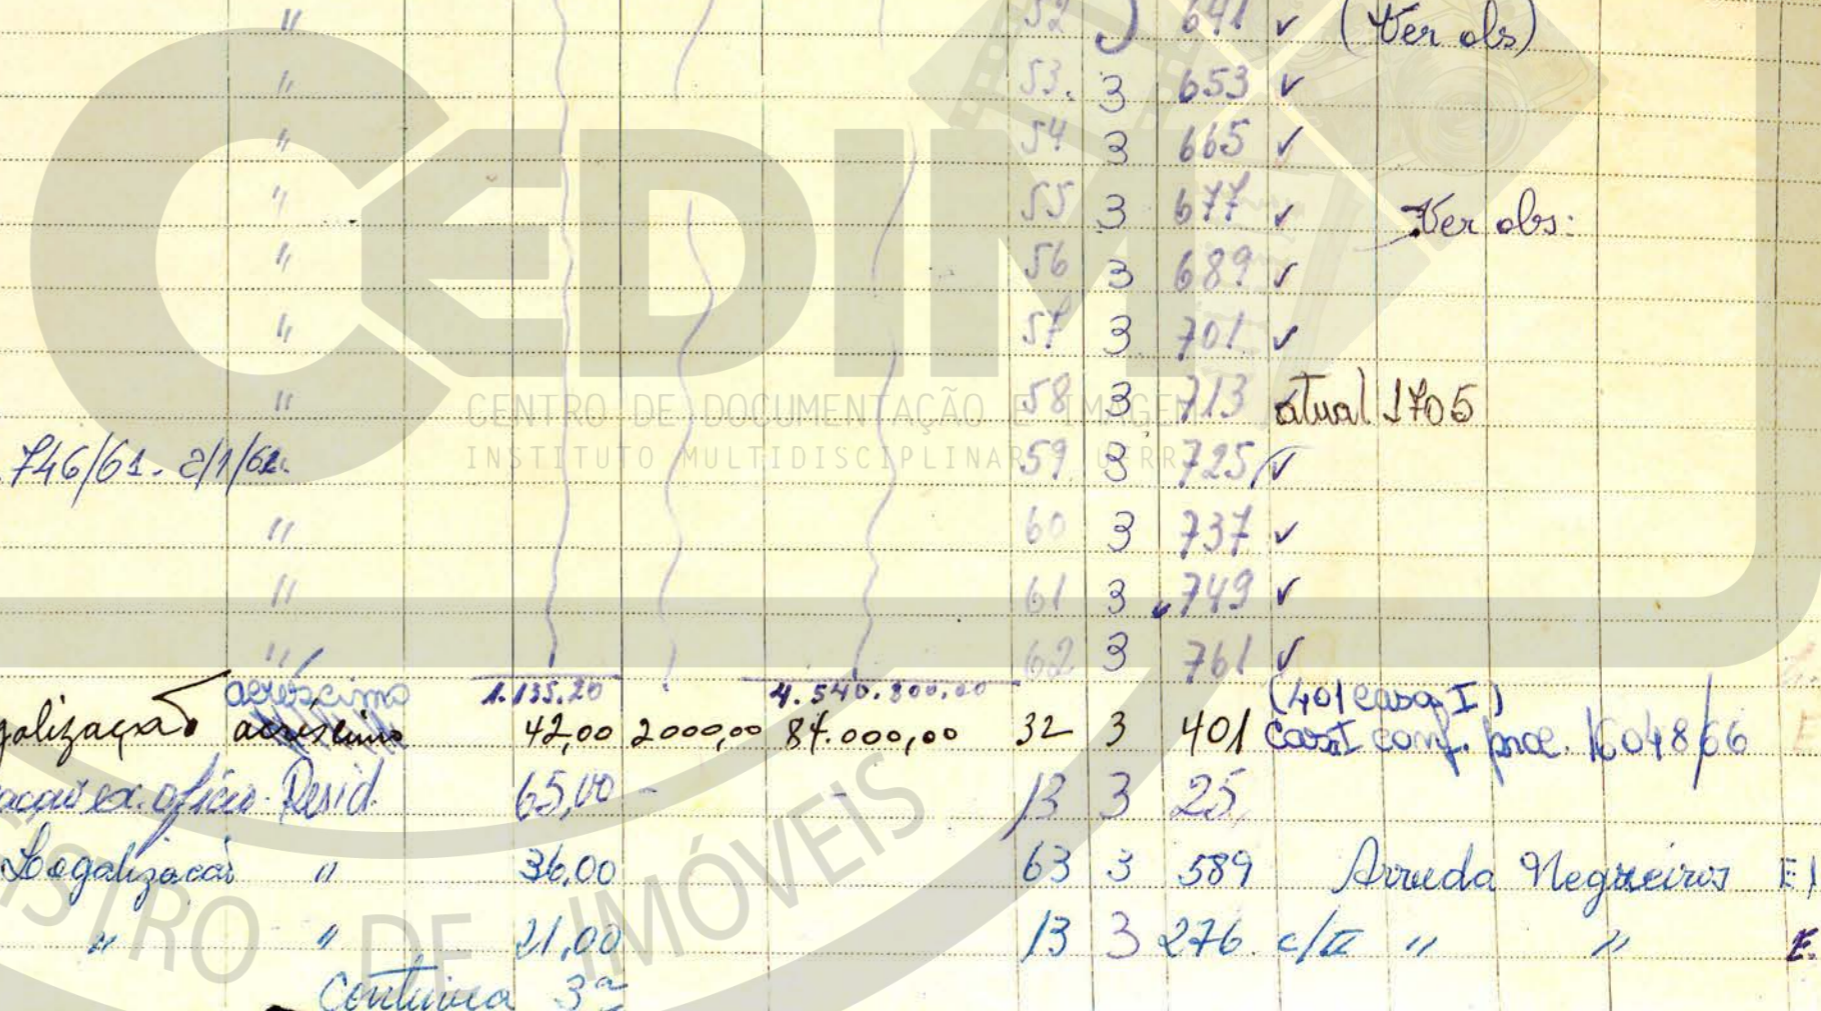 " 52 3 641 ✓ (Ver obs)
" 53. 3 653 ✓
" 54 3 665 ✓
" 55 3 677 ✓ Ver obs:
" 56 3 689 ✓
" 57 3 701. ✓
" 58 3 713 atual 1705
746/61. 2/1/62. 59 3 725 ✓
" 60 3 737 ✓
" 61 3 749 ✓
" 62 3 761 ✓
acréscimo 1.135.20 4.540.800,00 (401 casa I)
galização acréscimo 42,00 2000,00 84.000,00 32 3 401 casa I conf. proc. 16048/66
ex. ofício. Resid. 65,00 - - 13 3 25,
Loegalizacão " 36.00 63 3 589 Arruda Negreiros E
" " 21,00 13 3 276. c/II " " E.
Continua 3ª
CEDIM
CENTRO DE DOCUMENTAÇÃO E IMAGEM
INSTITUTO MULTIDISCIPLINAR UFRRJ
ISTRO DE IMÓVEIS